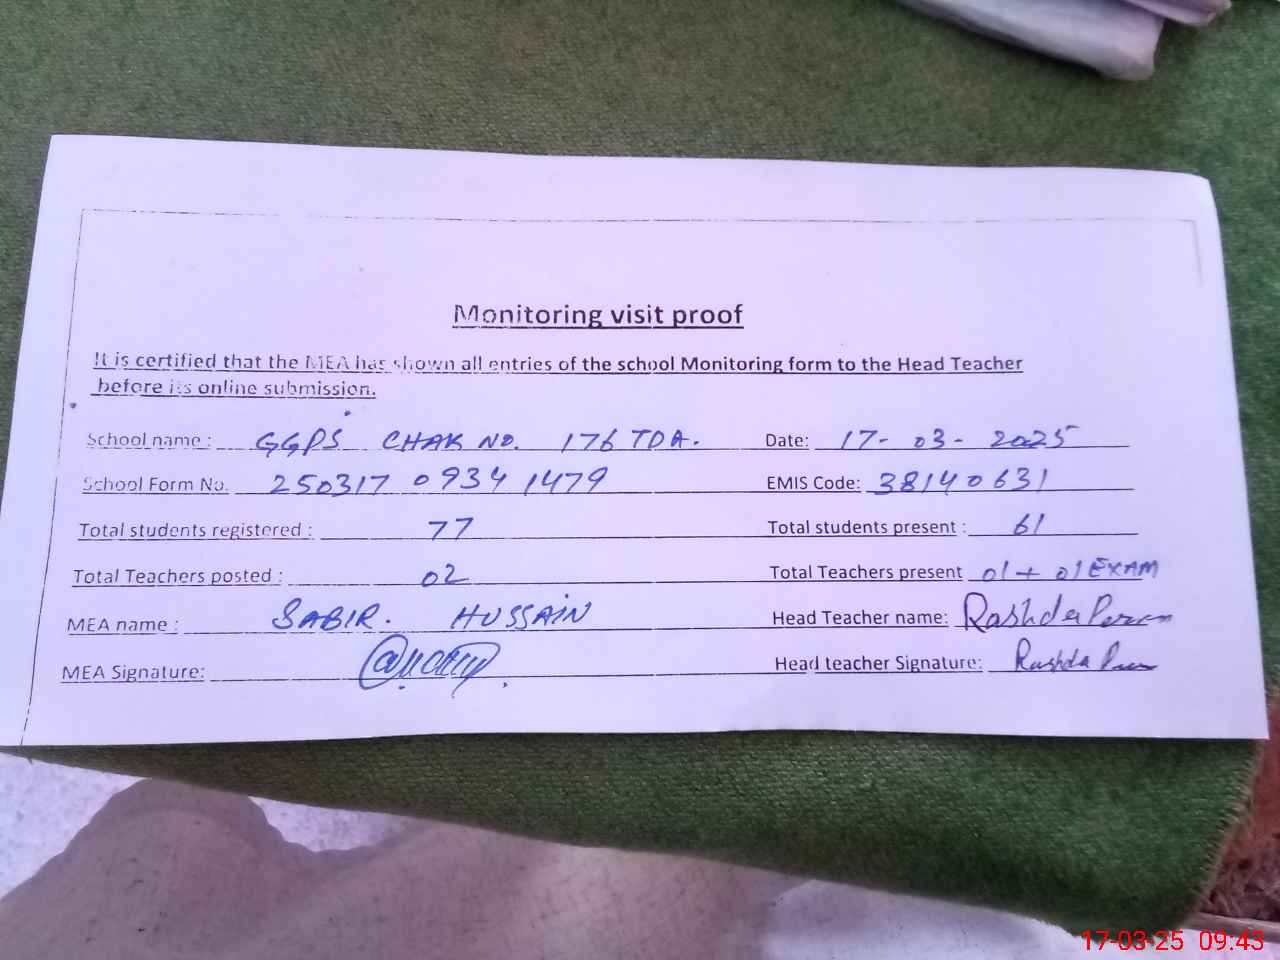 Monitoring visit proof
It is certified that the MEA has shown all entries of the school Monitoring form to the Head Teacher
before its online submission.
School name : GGPS CHAK NO. 176 TDA. Date: 17-03-2025
School Form No. 250317 0934 1479 EMIS Code: 38140631
Total students registered : 77 Total students present : 61
Total Teachers posted : 02 Total Teachers present 01 + 01 EXAM
MEA name : SABIR. HUSSAIN Head Teacher name: Rashda
MEA Signature: Head teacher Signature: Rashda
17-03-25 09:43